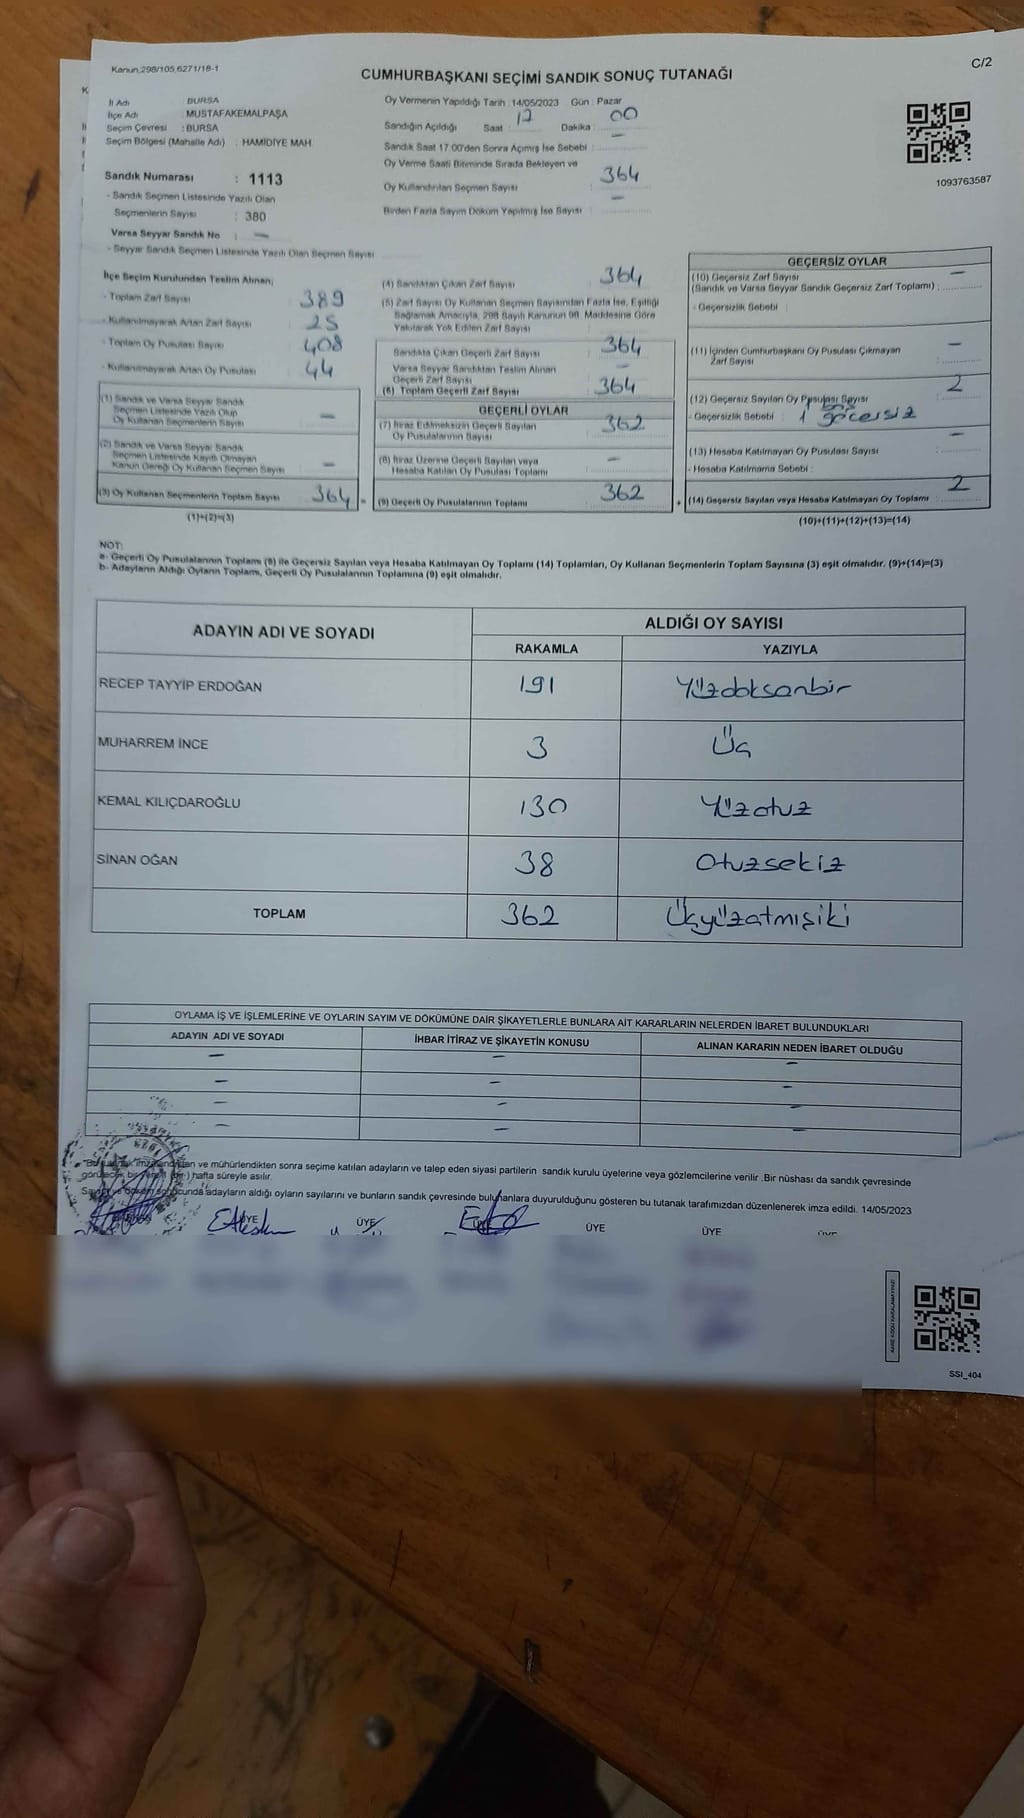 Kanun,298/105,6271/18-1
C/2
CUMHURBAŞKANI SEÇİMİ SANDIK SONUÇ TUTANAĞI
İl Adı BURSA
İlçe Adı : MUSTAFAKEMALPAŞA
Seçim Çevresi : BURSA
Seçim Bölgesi (Mahalle Adı) : HAMİDİYE MAH
Sandık Numarası : 1113
- Sandık Seçmen Listesinde Yazılı Olan
Seçmenlerin Sayısı : 380
Varsa Seyyar Sandık No : —
- Seyyar Sandık Seçmen Listesinde Yazılı Olan Seçmen Sayısı
Oy Vermenin Yapıldığı Tarih : 14/05/2023 Gün : Pazar
Sandığın Açıldığı Saat : 17 Dakika : 00
Sandık Saat 17.00'den Sonra Açımış İse Sebebi : —
Oy Verme Saati Bitiminde Sırada Bekleyen ve
Oy Kullandırılan Seçmen Sayısı : 364
Birden Fazla Sayım Döküm Yapılmış İse Sayısı : —
1093763587
İlçe Seçim Kurulundan Teslim Alınan;
- Toplam Zarf Sayısı 389
- Kullanılmayarak Artan Zarf Sayısı 25
- Toplam Oy Pusulası Sayısı 408
- Kullanılmayarak Artan Oy Pusulası 44
(1) Sandık ve Varsa Seyyar Sandık
Seçmen Listesinde Yazılı Olup
Oy Kullanan Seçmenlerin Sayısı —
(2) Sandık ve Varsa Seyyar Sandık
Seçmen Listesinde Kayıtlı Olmayan
Kanun Gereği Oy Kullanan Seçmen Sayısı —
(3) Oy Kullanan Seçmenlerin Toplam Sayısı 364 =
(1)+(2)=(3)
(4) Sandıktan Çıkan Zarf Sayısı 364
(5) Zarf Sayısı Oy Kullanan Seçmen Sayısından Fazla İse, Eşitliği
Sağlamak Amacıyla, 298 Sayılı Kanunun 98. Maddesine Göre
Yakılarak Yok Edilen Zarf Sayısı
Sandıkta Çıkan Geçerli Zarf Sayısı 364
Varsa Seyyar Sandıktan Teslim Alınan
Geçerli Zarf Sayısı
(6) Toplam Geçerli Zarf Sayısı 364
GEÇERLİ OYLAR
(7) İtiraz Edilmeksizin Geçerli Sayılan
Oy Pusulalarının Sayısı 362
(8) İtiraz Üzerine Geçerli Sayılan veya
Hesaba Katılan Oy Pusulası Toplamı —
(9) Geçerli Oy Pusulalarının Toplamı 362 +
GEÇERSİZ OYLAR
(10) Geçersiz Zarf Sayısı —
(Sandık ve Varsa Seyyar Sandık Geçersiz Zarf Toplamı) :
- Geçersizlik Sebebi :
(11) İçinden Cumhurbaşkanı Oy Pusulası Çıkmayan
Zarf Sayısı —
(12) Geçersiz Sayılan Oy Pusulası Sayısı 2
- Geçersizlik Sebebi :
(13) Hesaba Katılmayan Oy Pusulası Sayısı —
- Hesaba Katılmama Sebebi :
(14) Geçersiz Sayılan veya Hesaba Katılmayan Oy Toplamı : 2
(10)+(11)+(12)+(13)=(14)
NOT:
a- Geçerli Oy Pusulalarının Toplamı (9) ile Geçersiz Sayılan veya Hesaba Katılmayan Oy Toplamı (14) Toplamları, Oy Kullanan Seçmenlerin Toplam Sayısına (3) eşit olmalıdır. (9)+(14)=(3)
b- Adayların Aldığı Oyların Toplamı, Geçerli Oy Pusulalarının Toplamına (9) eşit olmalıdır.
ADAYIN ADI VE SOYADI
ALDIĞI OY SAYISI
RAKAMLA YAZIYLA
RECEP TAYYİP ERDOĞAN 191 Yüzdoksanbir
MUHARREM İNCE 3 Üç
KEMAL KILIÇDAROĞLU 130 Yüzotuz
SİNAN OĞAN 38 Otuzsekiz
TOPLAM 362 Üçyüzatmışiki
OYLAMA İŞ VE İŞLEMLERİNE VE OYLARIN SAYIM VE DÖKÜMÜNE DAİR ŞİKAYETLERLE BUNLARA AİT KARARLARIN NELERDEN İBARET BULUNDUKLARI
ADAYIN ADI VE SOYADI İHBAR İTİRAZ VE ŞİKAYETİN KONUSU ALINAN KARARIN NEDEN İBARET OLDUĞU
— — —
— — —
— — —
— — —
ve mühürlendikten sonra seçime katılan adayların ve talep eden siyasi partilerin sandık kurulu üyelerine veya gözlemcilerine verilir .Bir nüshası da sandık çevresinde
hafta süreyle asılır.
adayların aldığı oyların sayılarını ve bunların sandık çevresinde bulunanlara duyurulduğunu gösteren bu tutanak tarafımızdan düzenlenerek imza edildi. 14/05/2023
ÜYE ÜYE ÜYE ÜYE
SSI_404